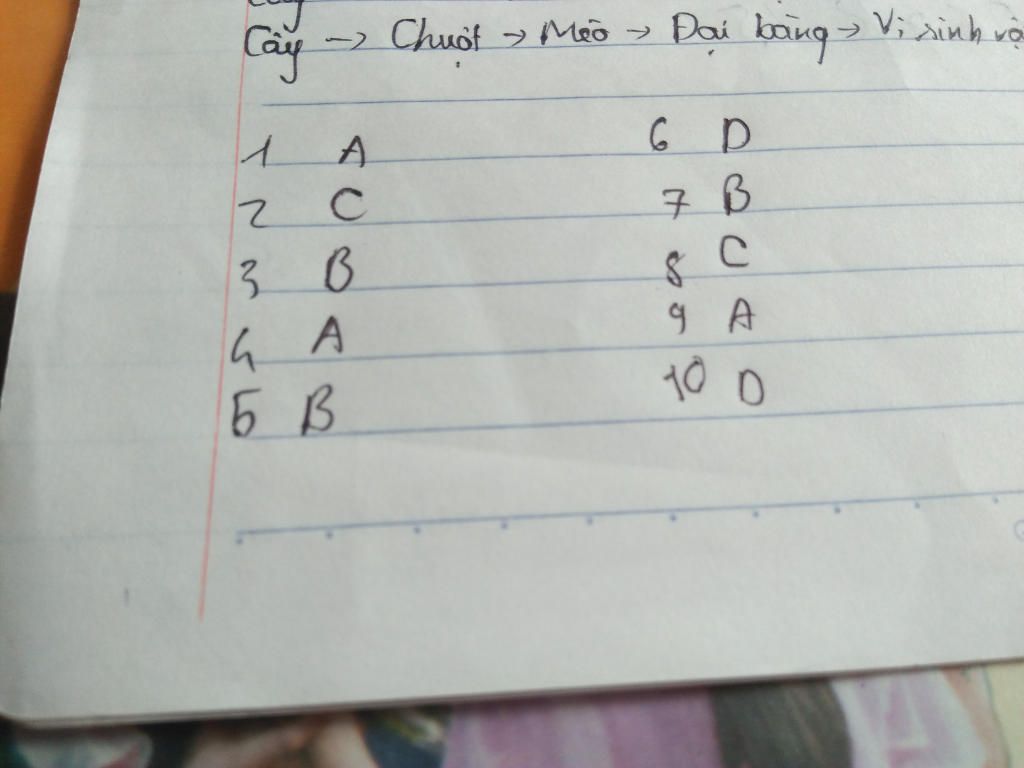 Cây → Chuột → Mèo → Đại bàng → Vi sinh
1 A 6 D
2 C 7 B
3 B 8 C
4 A 9 A
5 B 10 D